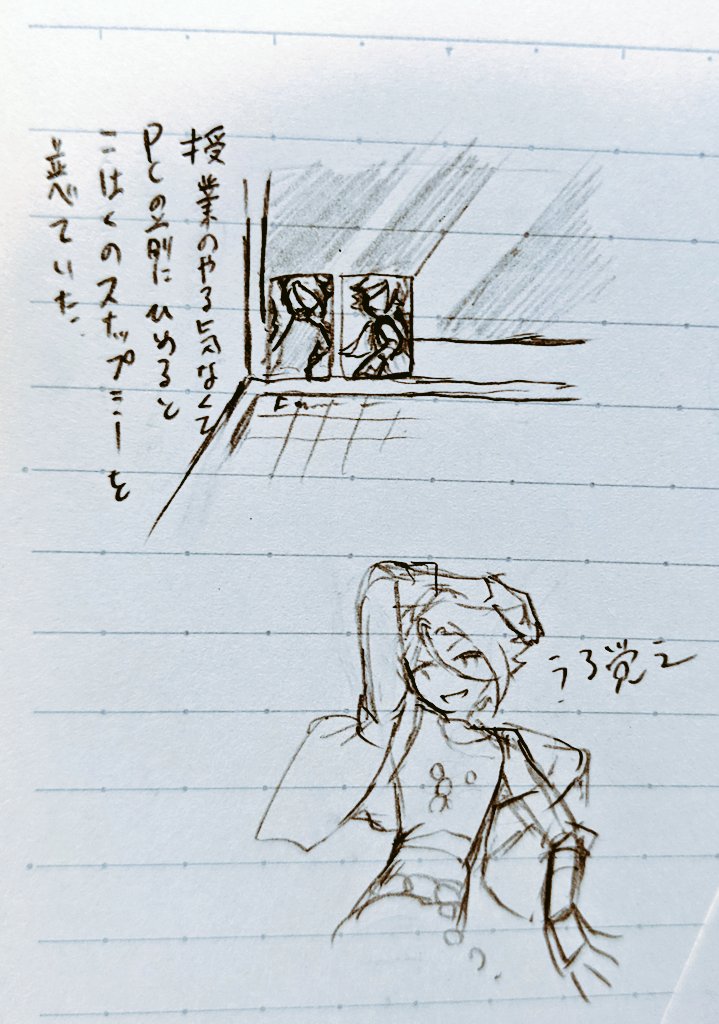 授業のやる気なくて
PCの前にひめると
こはくのスナップミニーを
並べていた.
うろ覚え